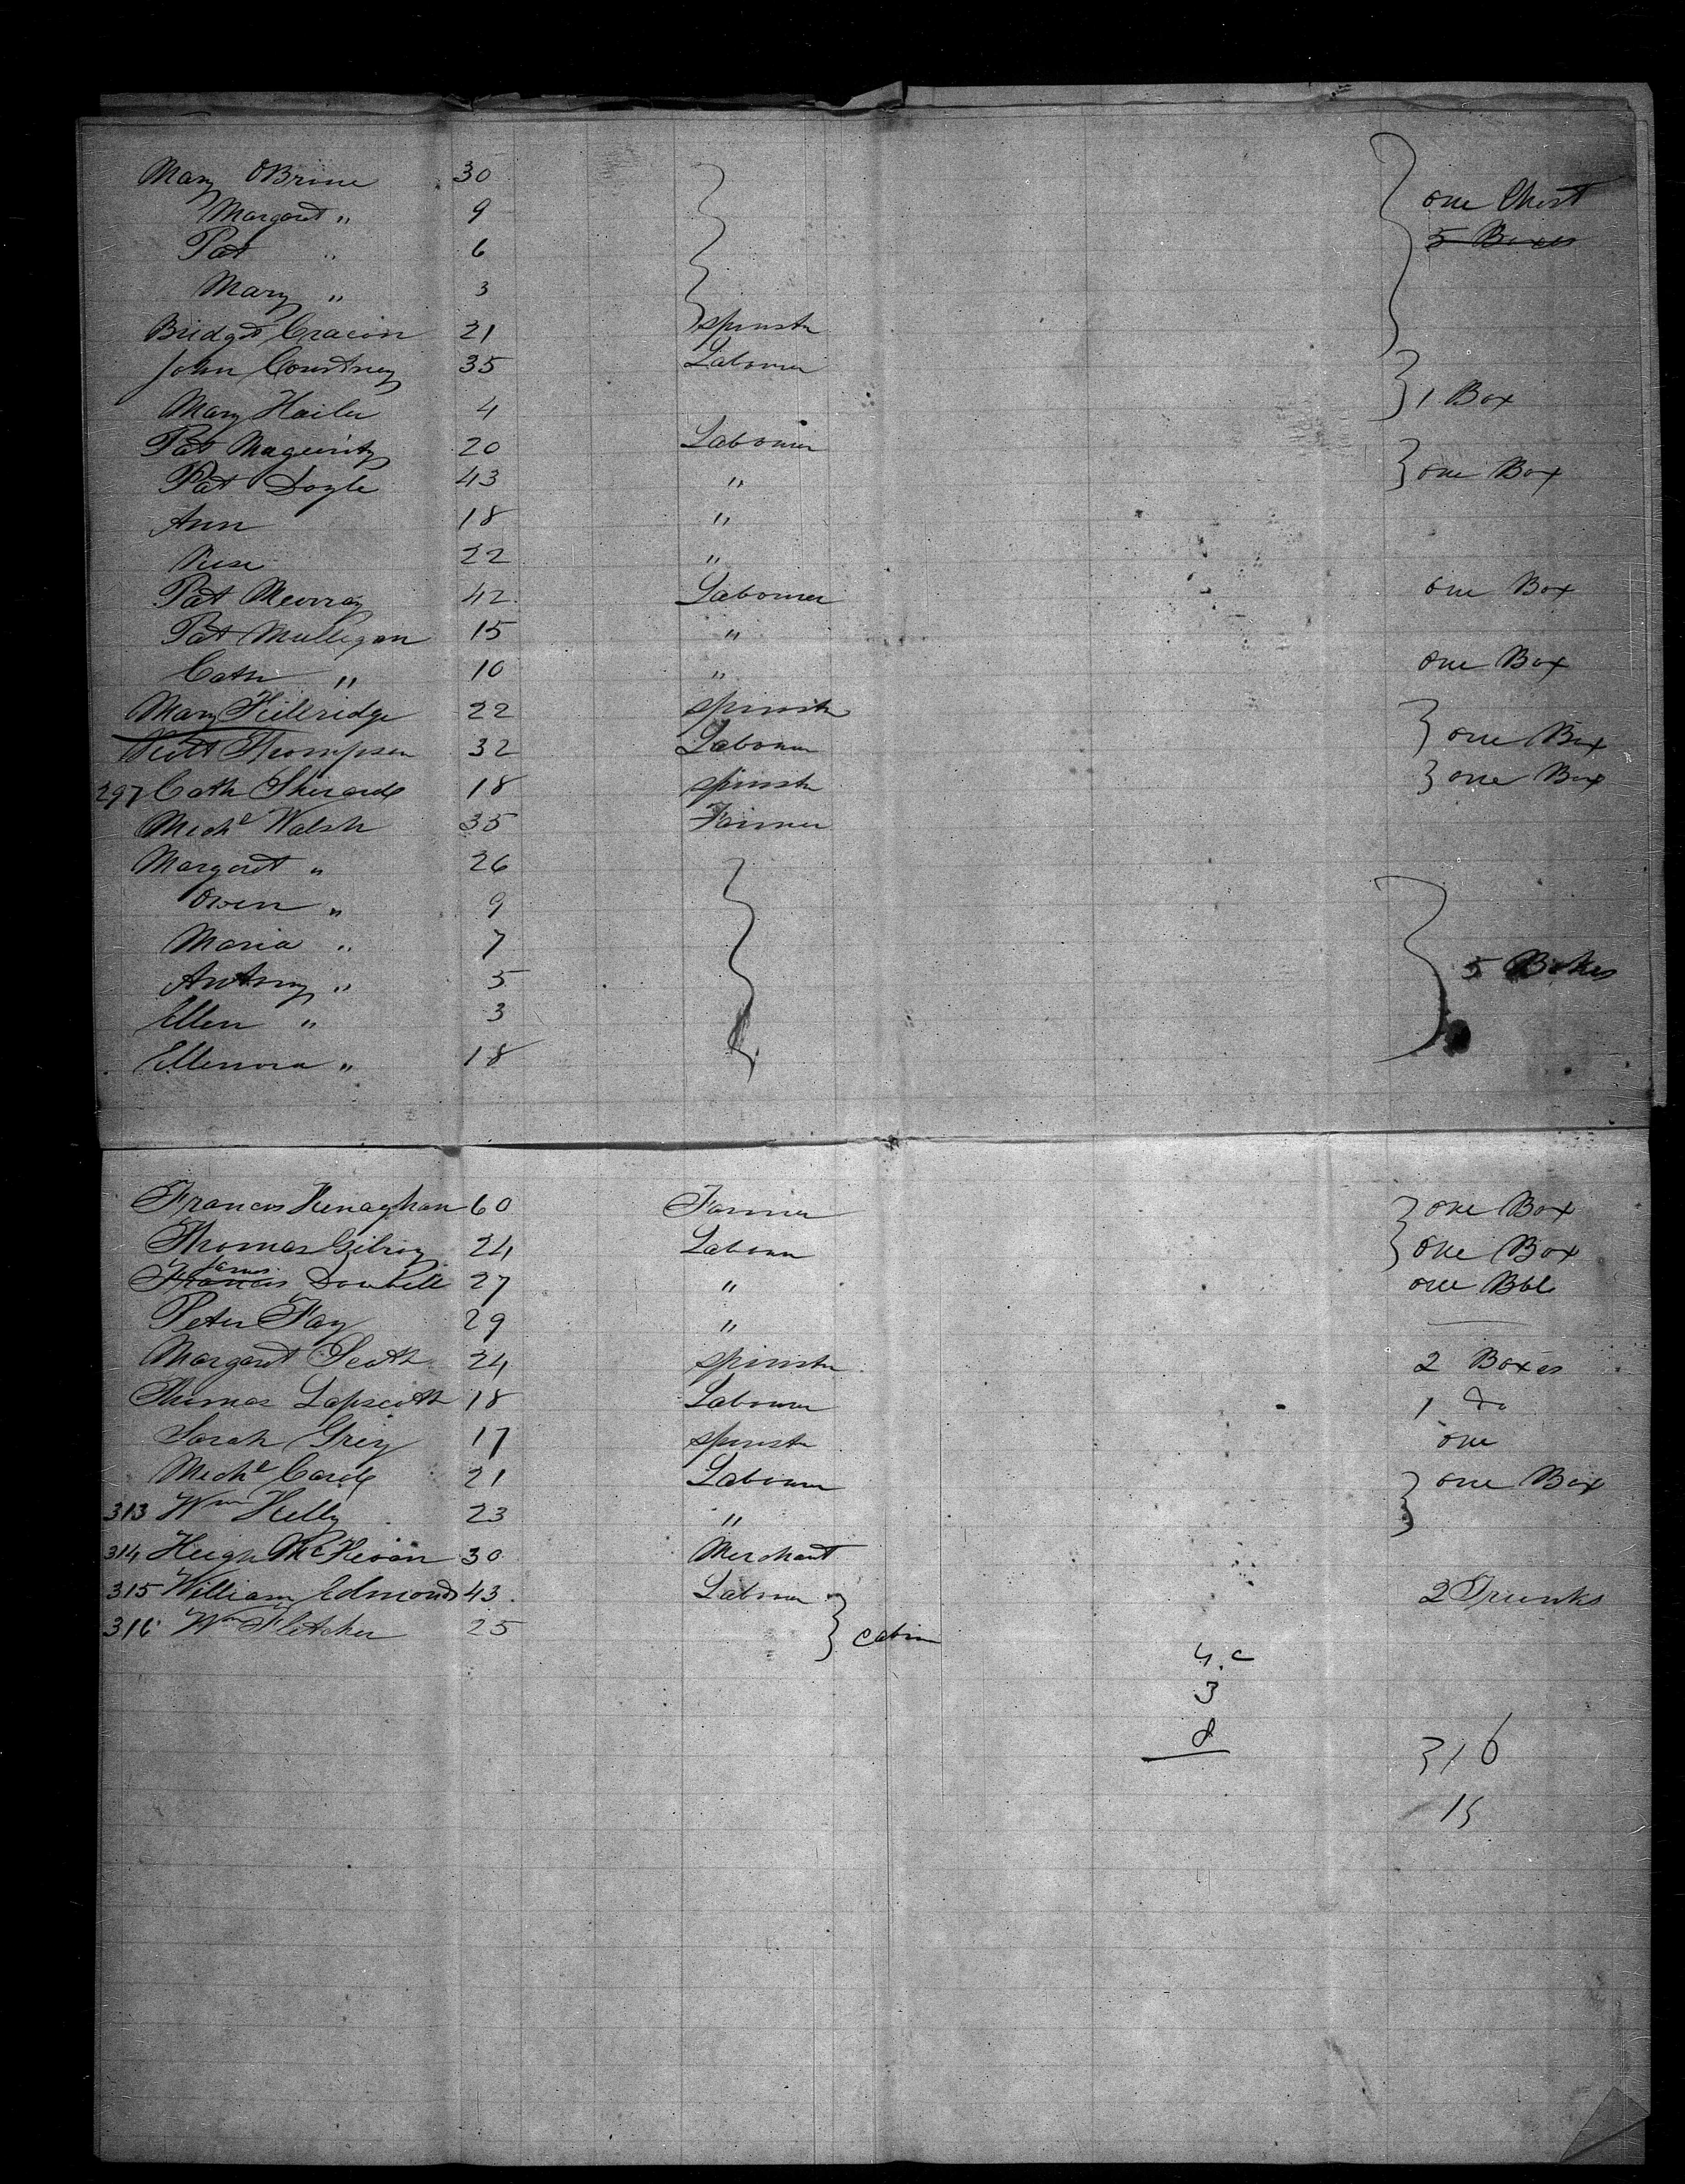 Mary OBrine 30 one Chest
Margaret " 9 5 Boxes
Pat " 6
Mary " 3
Bridget 21 spinstr
John Courtney 35 Labourer
Mary 4 1 Box
Pat 20 Labourer
Pat Doyle 43 " one Box
Ann 18 "
Rose 22 "
Pat Murray 42 Labourer one Box
Pat Mulligan 15 "
Cath " 10 " one Box
Mary 22 spinstr
Thompson 32 Labourer one Box
297 Cath 18 spinstr one Box
Michl Walsh 35 Farmer
Margaret " 26
Owen " 9
Maria " 7
Antony " 5 5 Boxes
Ellen " 3
Ellenora " 18
Francis Henaghan 60 Farmer one Box
Thomas Gilroy 24 Labourer one Box
James
Francis 27 " one Bbl
Peter Fay 29 "
Margaret 24 spinstr 2 Boxes
Thomas 18 Labourer 1 Do
Sarah Grey 17 spinstr one
Michl 21 Labourer one Box
313 Wm Kelly 23 "
314 Hugh 30 Merchant
315 William Edmonds 43 Labourer 2 Trunks
316 Wm Fletcher 25 Cabin
4.c
3
8
316
15